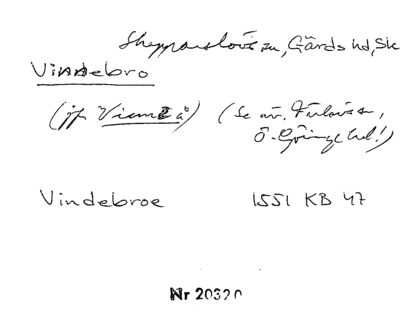 Skepparslövs sn, Gärds hd, Sk
Vindebro
(jf Vienne å) (Se äv. Färlövs sn,
Ö. Göinge hd!)
Vindebroe 1551 KB 47
Nr 20320